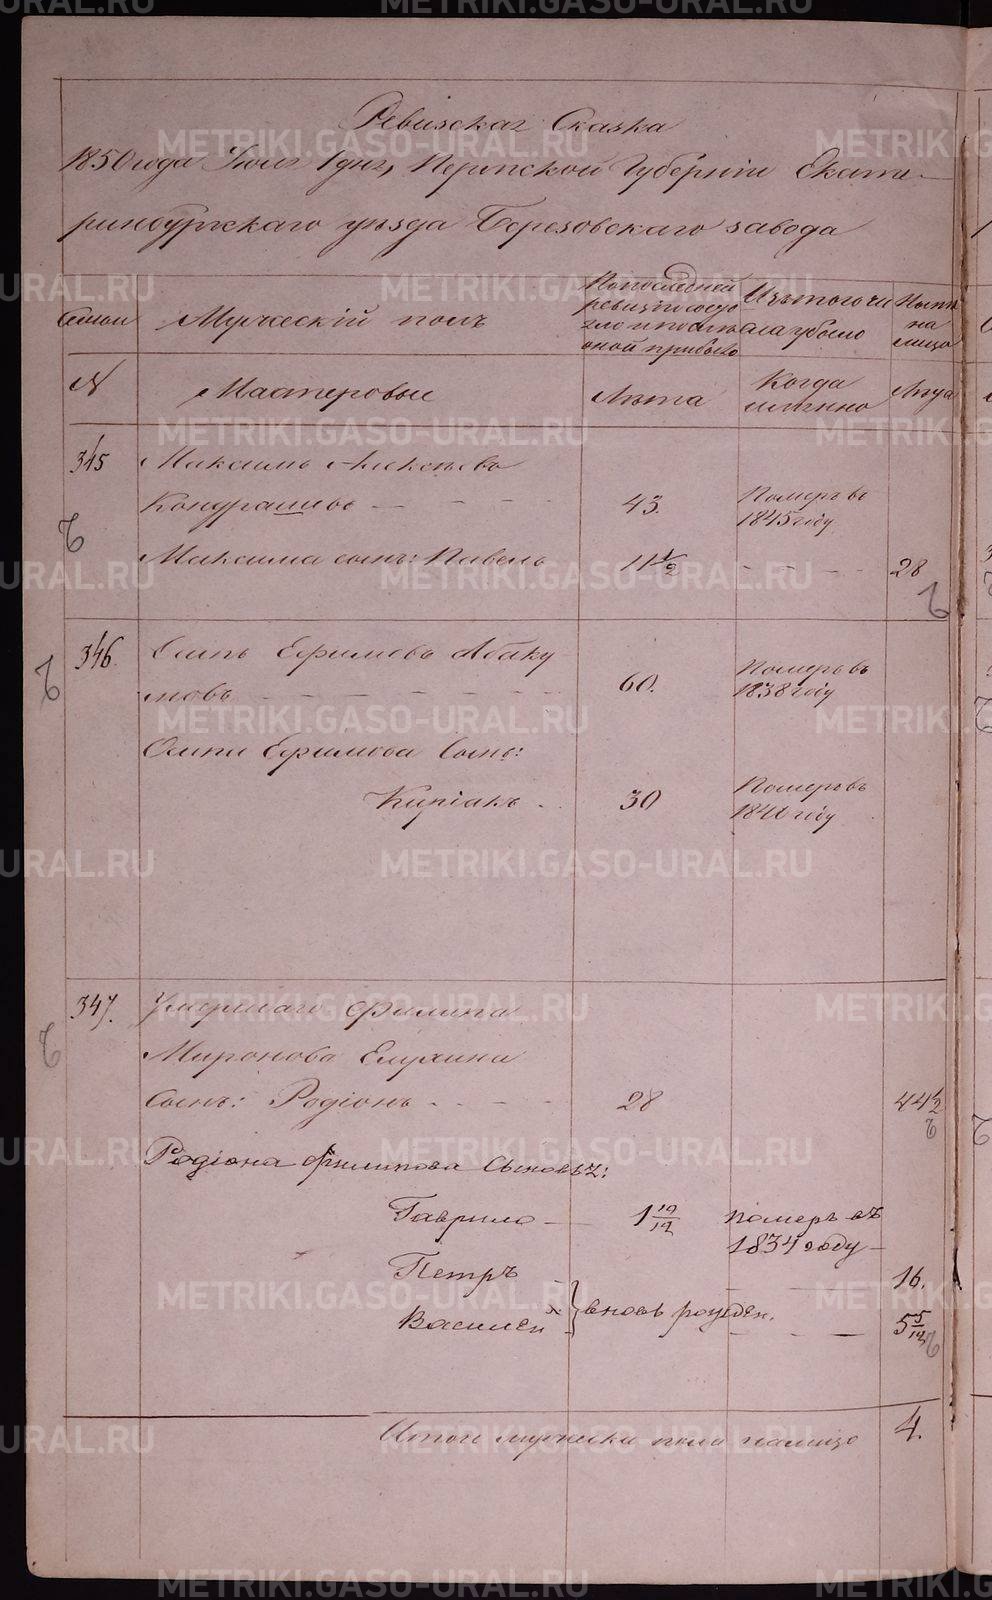 Ревизская Сказка
1850 года Июля 1 дня, Пермской Губерніи Екате-
ринбургскаго уѣзда Березовскаго завода
Семьи
Мужескій полъ
По последней ревизіи состояло и после оной прибыло
Изъ того числа убыло
Ныне на лицо
N
Мастеровые
Лѣта
Когда именно
Лѣта
345
Максимъ Алексѣевъ
Кондрашевъ - - - -
43.
Померъ въ
1845 году
Максима сынъ: Павелъ
11 1/2
- - - -
28
346.
Осипъ Ефимовъ Абаку
мовъ - - - - - -
60.
Померъ въ
1838 году
Осипа Ефимова Сынъ:
Киріакъ - -
30
Померъ въ
1840 году
347.
Умершаго Филипа
Миронова Елухина
Сынъ: Родіонъ - - - -
28
44 1/2
Родіона Филипова Сыновья:
Гаврило —
1 10/12
померъ въ
1834 году —
Петръ
16.
Василей
} вновь рожден.
- - -
5 5/12
Итого мужеска пола налицо
4.
METRIKI.GASO-URAL.RU